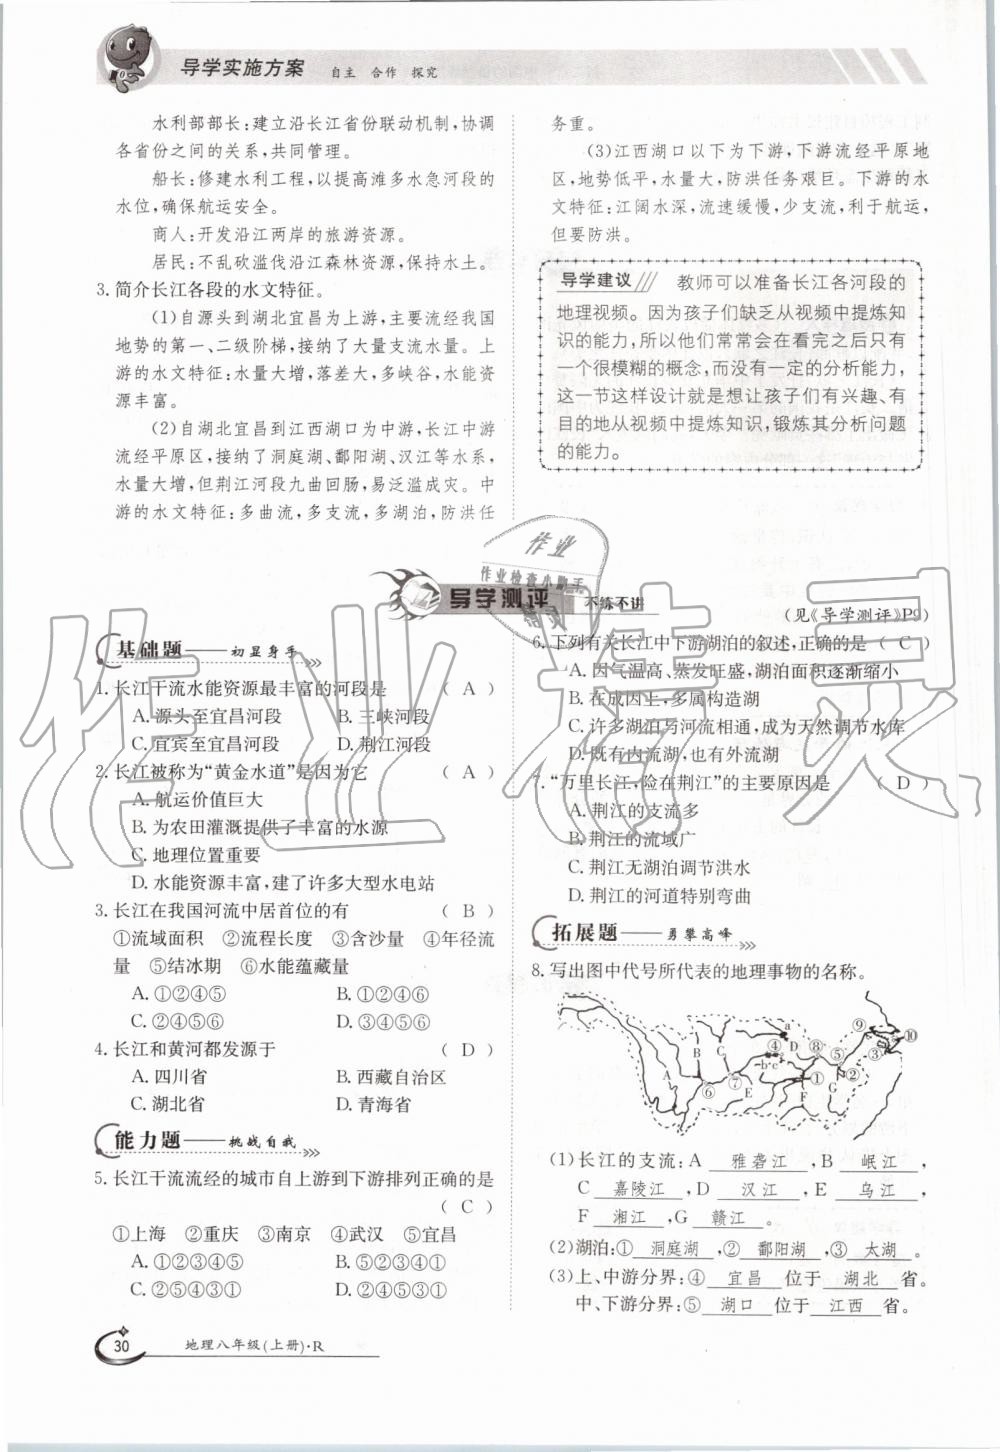 导学实施方案 自主 合作 探究
水利部部长:建立沿长江省份联动机制,协调
各省份之间的关系,共同管理。
船长:修建水利工程,以提高滩多水急河段的
水位,确保航运安全。
商人:开发沿江两岸的旅游资源。
居民:不乱砍滥伐沿江森林资源,保持水土。
3. 简介长江各段的水文特征。
(1)自源头到湖北宜昌为上游,主要流经我国
地势的第一、二级阶梯,接纳了大量支流水量。上
游的水文特征:水量增大,落差大,多峡谷,水能资
源丰富。
(2)自湖北宜昌到江西湖口为中游,长江中游
流经平原区,接纳了洞庭湖、鄱阳湖、汉江等水系,
水量大增,但荆江河段九曲回肠,易泛滥成灾。中
游的水文特征:多曲流,多支流,多湖泊,防洪任
务重。
(3)江西湖口以下为下游,下游流经平原地
区,地势低平,水量大,防洪任务艰巨。下游的水
文特征:江阔水深,流速缓慢,少支流,利于航运,
但要防洪。
导学建议 教师可以准备长江各河段的
地理视频。因为孩子们缺乏从视频中提炼知
识的能力,所以他们常常会在看完之后只有
一个很模糊的概念,而没有一定的分析能力,
这一节这样设计就是想让孩子们有兴趣、有
目的地从视频中提炼知识,锻炼其分析问题
的能力。
导学测评 不练不讲
(见《导学测评》P9)
基础题——初显身手
1. 长江干流水能资源最丰富的河段是 ( A )
A. 源头至宜昌河段 B. 三峡河段
C. 宜宾至宜昌河段 D. 荆江河段
2. 长江被称为“黄金水道”是因为它 ( A )
A. 航运价值巨大
B. 为农田灌溉提供了丰富的水源
C. 地理位置重要
D. 水能资源丰富,建了许多大型水电站
3. 长江在我国河流中居首位的有 ( B )
①流域面积 ②流程长度 ③含沙量 ④年径流
量 ⑤结冰期 ⑥水能蕴藏量
A. ①②④⑤ B. ①②④⑥
C. ②④⑤⑥ D. ③④⑤⑥
4. 长江和黄河都发源于 ( D )
A. 四川省 B. 西藏自治区
C. 湖北省 D. 青海省
能力题——挑战自我
5. 长江干流流经的城市自上游到下游排列正确的是
( C )
①上海 ②重庆 ③南京 ④武汉 ⑤宜昌
A. ①②③④⑤ B. ⑤②③④①
C. ②⑤④③① D. ②④⑤③①
6. 下列有关长江中下游湖泊的叙述,正确的是 ( C )
A. 因气温高、蒸发旺盛,湖泊面积逐渐缩小
B. 在成因上,多属构造湖
C. 许多湖泊与河流相通,成为天然调节水库
D. 既有内流湖,也有外流湖
7. “万里长江,险在荆江”的主要原因是 ( D )
A. 荆江的支流多
B. 荆江的流域广
C. 荆江无湖泊调节洪水
D. 荆江的河道特别弯曲
拓展题——勇攀高峰
8. 写出图中代号所代表的地理事物的名称。
A B C D E F G a b c ① ② ③ ④ ⑤ ⑥ ⑦ ⑧ ⑨ ⑩
(1)长江的支流:A 雅砻江,B 岷江,
C 嘉陵江,D 汉江,E 乌江,
F 湘江,G 赣江。
(2)湖泊:① 洞庭湖,② 鄱阳湖,③ 太湖。
(3)上、中游分界:④ 宜昌 位于 湖北 省。
中、下游分界:⑤ 湖口 位于 江西 省。
30 地理八年级(上册)·R
作业
作业检查小助手
精灵
作业精灵